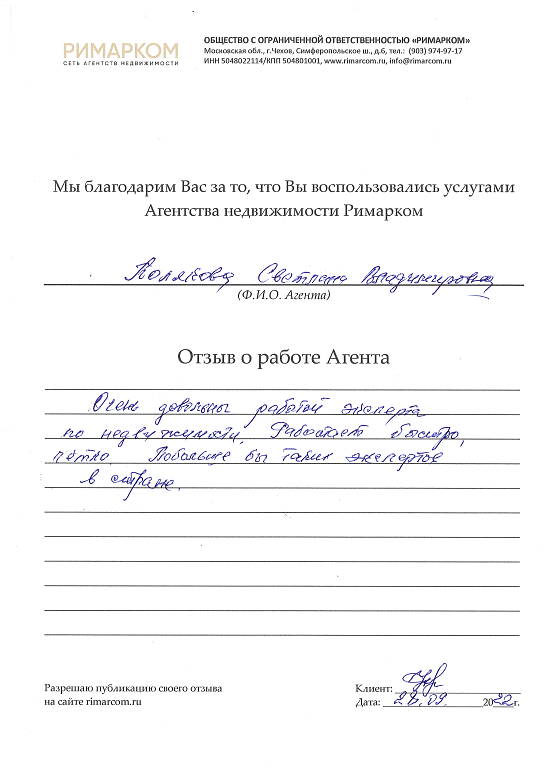 РИМАРКОМ
СЕТЬ АГЕНТСТВ НЕДВИЖИМОСТИ
ОБЩЕСТВО С ОГРАНИЧЕННОЙ ОТВЕТСТВЕННОСТЬЮ «РИМАРКОМ»
Московская обл., г.Чехов, Симферопольское ш., д.6, тел.: (903) 974-97-17
ИНН 5048022114/КПП 504801001, www.rimarcom.ru, info@rimarcom.ru
Мы благодарим Вас за то, что Вы воспользовались услугами
Агентства недвижимости Римарком
Полякова Светлана Владимировна
(Ф.И.О. Агента)
Отзыв о работе Агента
Очень довольны работой эксперта
по недвижимости. Работает быстро,
чётко. Побольше бы таких экспертов
в стране.
Разрешаю публикацию своего отзыва
на сайте rimarcom.ru
Клиент:
Дата: 28.09. 2022г.